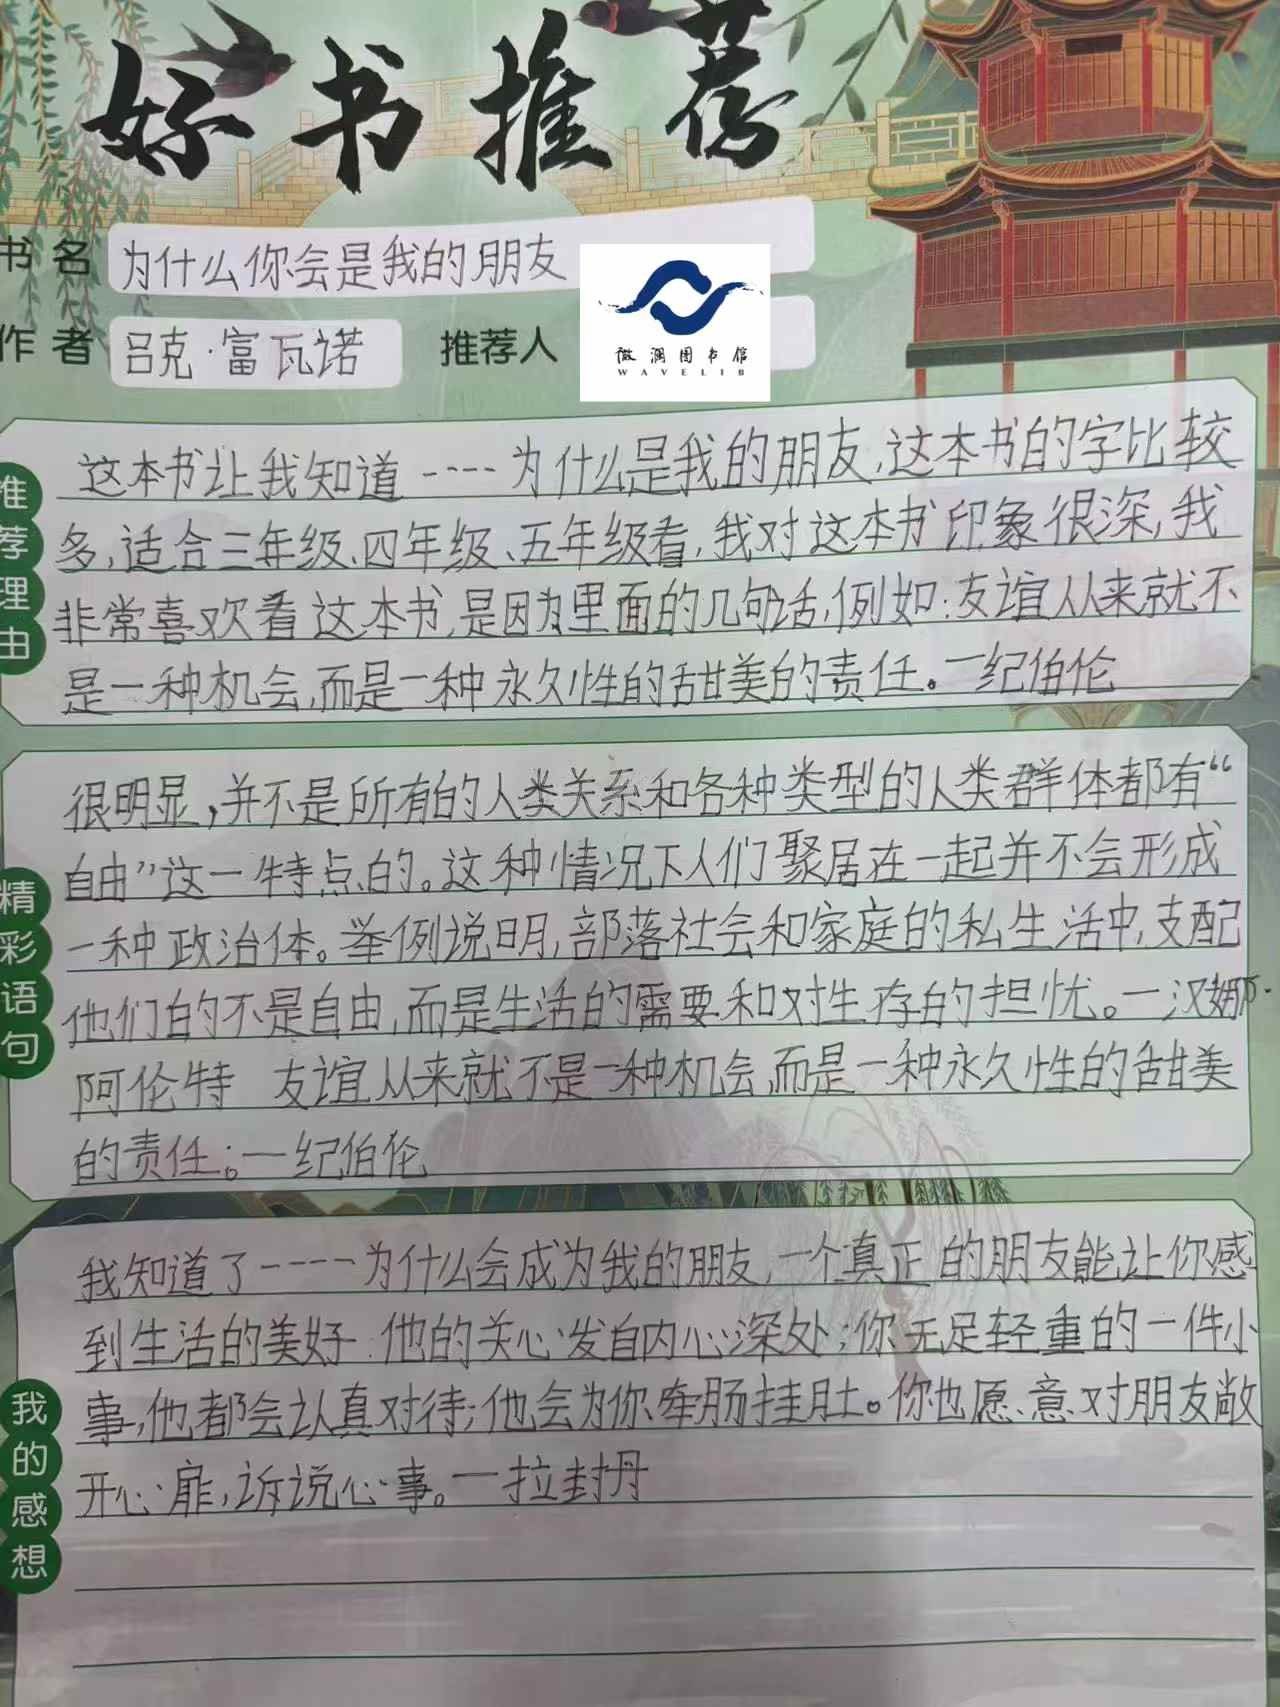 好书推荐
书名 为什么你会是我的朋友
作者 吕克·富瓦诺 推荐人
微澜图书馆
WAVELIB
推荐理由
这本书让我知道----为什么是我的朋友,这本书的字比较
多,适合三年级、四年级、五年级看,我对这本书印象很深,我
非常喜欢看这本书,是因为里面的几句话,例如:友谊从来就不
是一种机会,而是一种永久性的甜美的责任。一纪伯伦
精彩语句
很明显,并不是所有的人类关系和各种类型的人类群体都有“
自由”这一特点的。这种情况下人们聚居在一起并不会形成
一种政治体。举例说明,部落社会和家庭的私生活中,支配
他们的不是自由,而是生活的需要和对生存的担忧。一汉娜·
阿伦特 友谊从来就不是一种机会,而是一种永久性的甜美
的责任;。一纪伯伦
我的感想
我知道了----为什么会成为我的朋友,一个真正的朋友能让你感
到生活的美好.他的关心发自内心深处;你无足轻重的一件小
事,他都会认真对待;他会为你牵肠挂肚。你也愿意对朋友敞
开心扉,诉说心事。一拉封丹